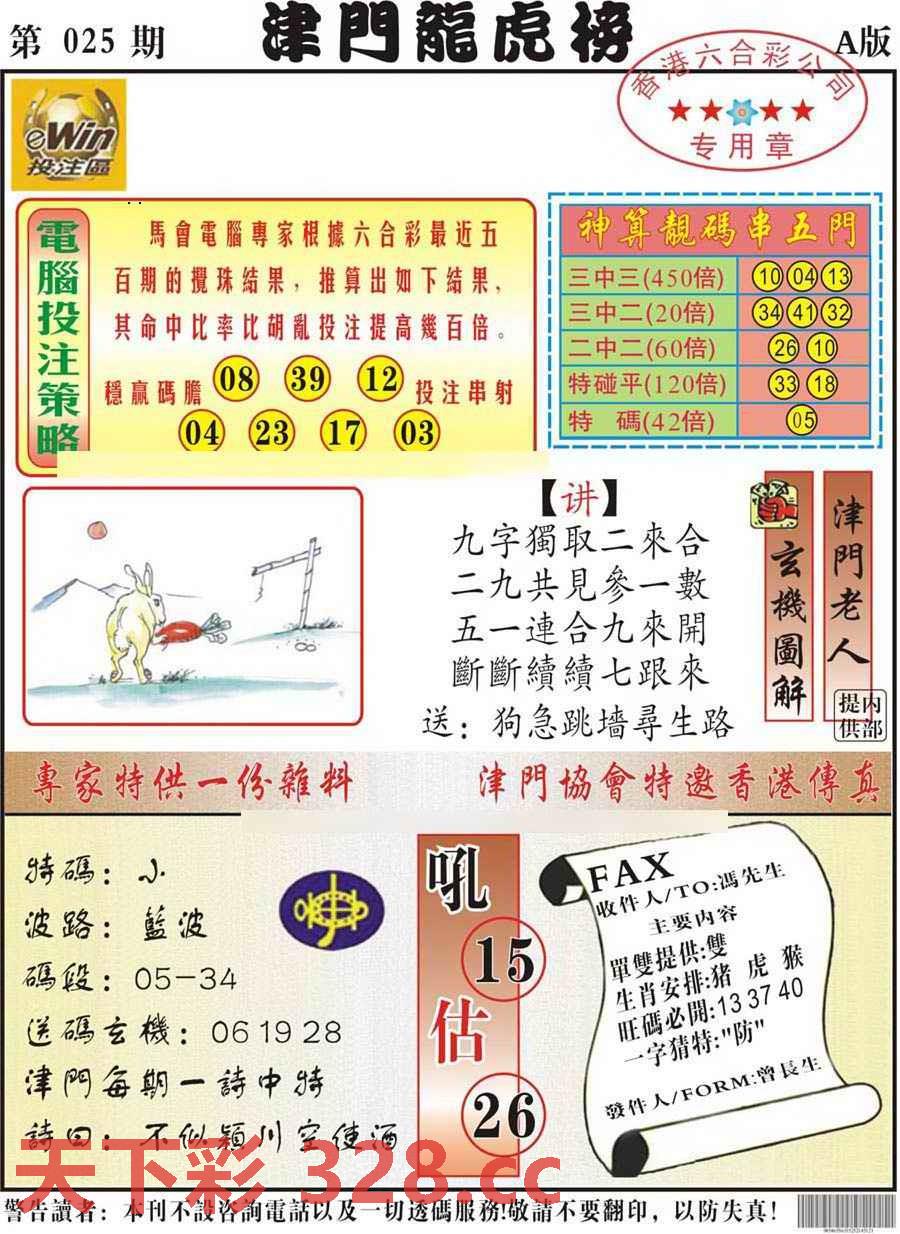 第 025 期
津門龍虎榜
A版
香港六合彩公司
专用章
eWin
投注區
電腦投注策略
馬會電腦專家根據六合彩最近五
百期的攪珠結果，推算出如下結果，
其命中比率比胡亂投注提高幾百倍。
穩贏碼膽 08 39 12 投注串射
04 23 17 03
神算靚碼串五門
三中三(450倍) 10 04 13
三中二(20倍) 34 41 32
二中二(60倍) 26 10
特碰平(120倍) 33 18
特 碼(42倍) 05
【讲】
九字獨取二來合
二九共見參一數
五一連合九來開
斷斷續續七跟來
送：狗急跳墻尋生路
玄機圖解
津門老人
内部提供
專家特供一份雜料
津門協會特邀香港傳真
特碼：小
波路：藍波
碼段：05—34
送碼玄機：06 19 28
津門每期一詩中特
詩曰：不似潁川空使酒
吼
15
估
26
FAX
收件人/TO:馮先生
主要内容
單雙提供:雙
生肖安排:猪 虎 猴
旺碼必開:13 37 40
一字猜特:"防"
發件人/FORM:曾長生
天下彩 328.cc
警告讀者：本刊不設咨詢電話以及一切透碼服務!敬請不要翻印，以防失真！